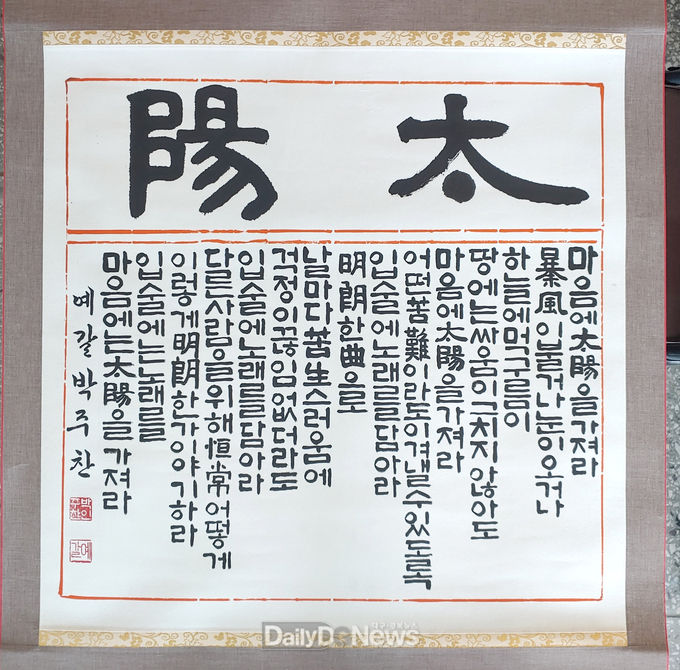 太陽
마음에太陽을가져라
暴風이불거나눈이오거나
하늘에먹구름이
땅에는싸움이그치지않아도
마음에太陽을가져라
어떤苦難이라도이겨낼수있도록
입술에노래를담아라
明朗한曲으로
날마다苦生스러움에
걱정이끊임없더라도
입술에노래를담아라
다른사람을위해恒常어떻게
이렇게明朗한가이야기하라
입술에는노래를
마음에는太陽을가져라
예갈 박주찬
예갈
대구·경북뉴스
DailyDgNews